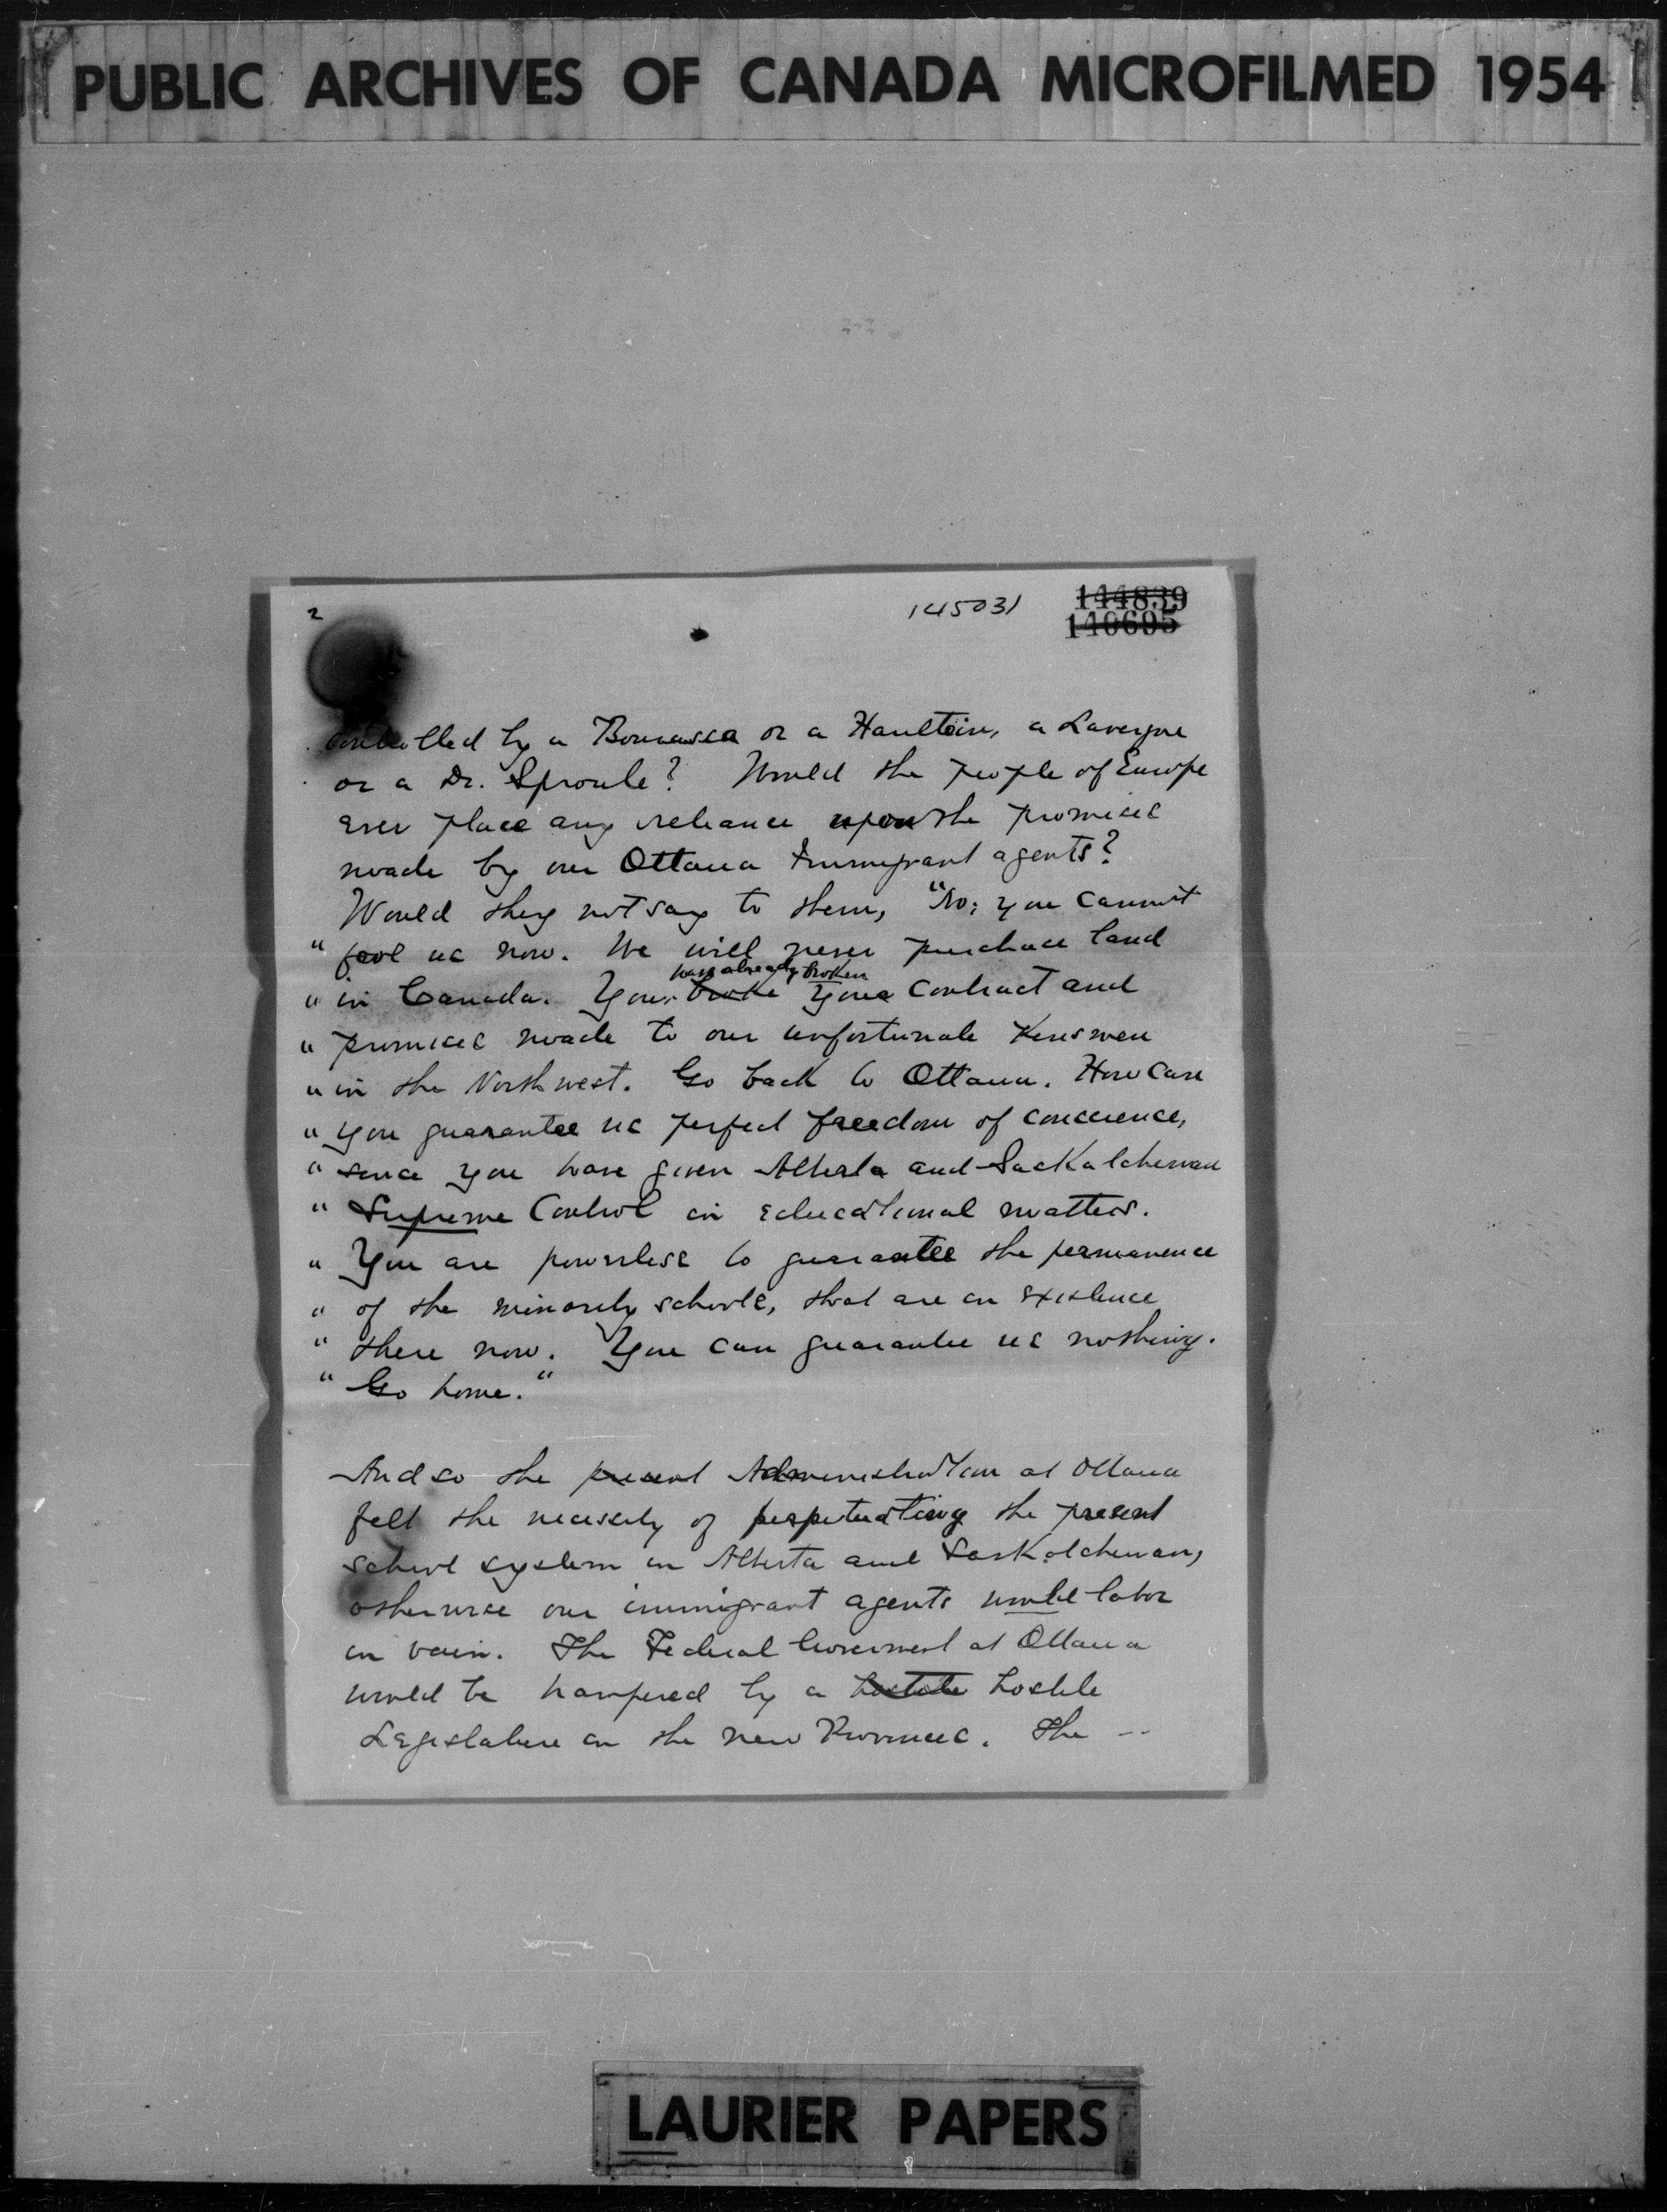 PUBLIC ARCHIVES OF CANADA MICROFILMED 1954
2
145031
144839
140695
Controlled by a Bourassa or a Haultain, a Lavergne
or a Dr. Sproule? Would the people of Europe
ever place any reliance upon the promises
made by our Ottawa Immigrant agents?
Would they not say to them, "No; you cannot
" fool us now. We will never purchase land
have already broken
" in Canada. You broke your Contract and
" promises made to our unfortunate Kinsmen
" in the Northwest. Go back to Ottawa. How can
" you guarantee us perfect freedom of conscience,
" since you have given Alberta and Saskatchewan
" Supreme Control in educational matters.
" You are powerless to guarantee the permanence
" of the minority schools, that are in existence
" there now. You can guarantee us nothing.
" Go home."
And so the present Administration at Ottawa
felt the necessity of perpetuating the present
school system in Alberta and Saskatchewan,
otherwise our immigrant agents would labor
in vain. The Federal Government at Ottawa
would be hampered by a hostile hostile
Legislature in the new Provinces. The --
LAURIER PAPERS